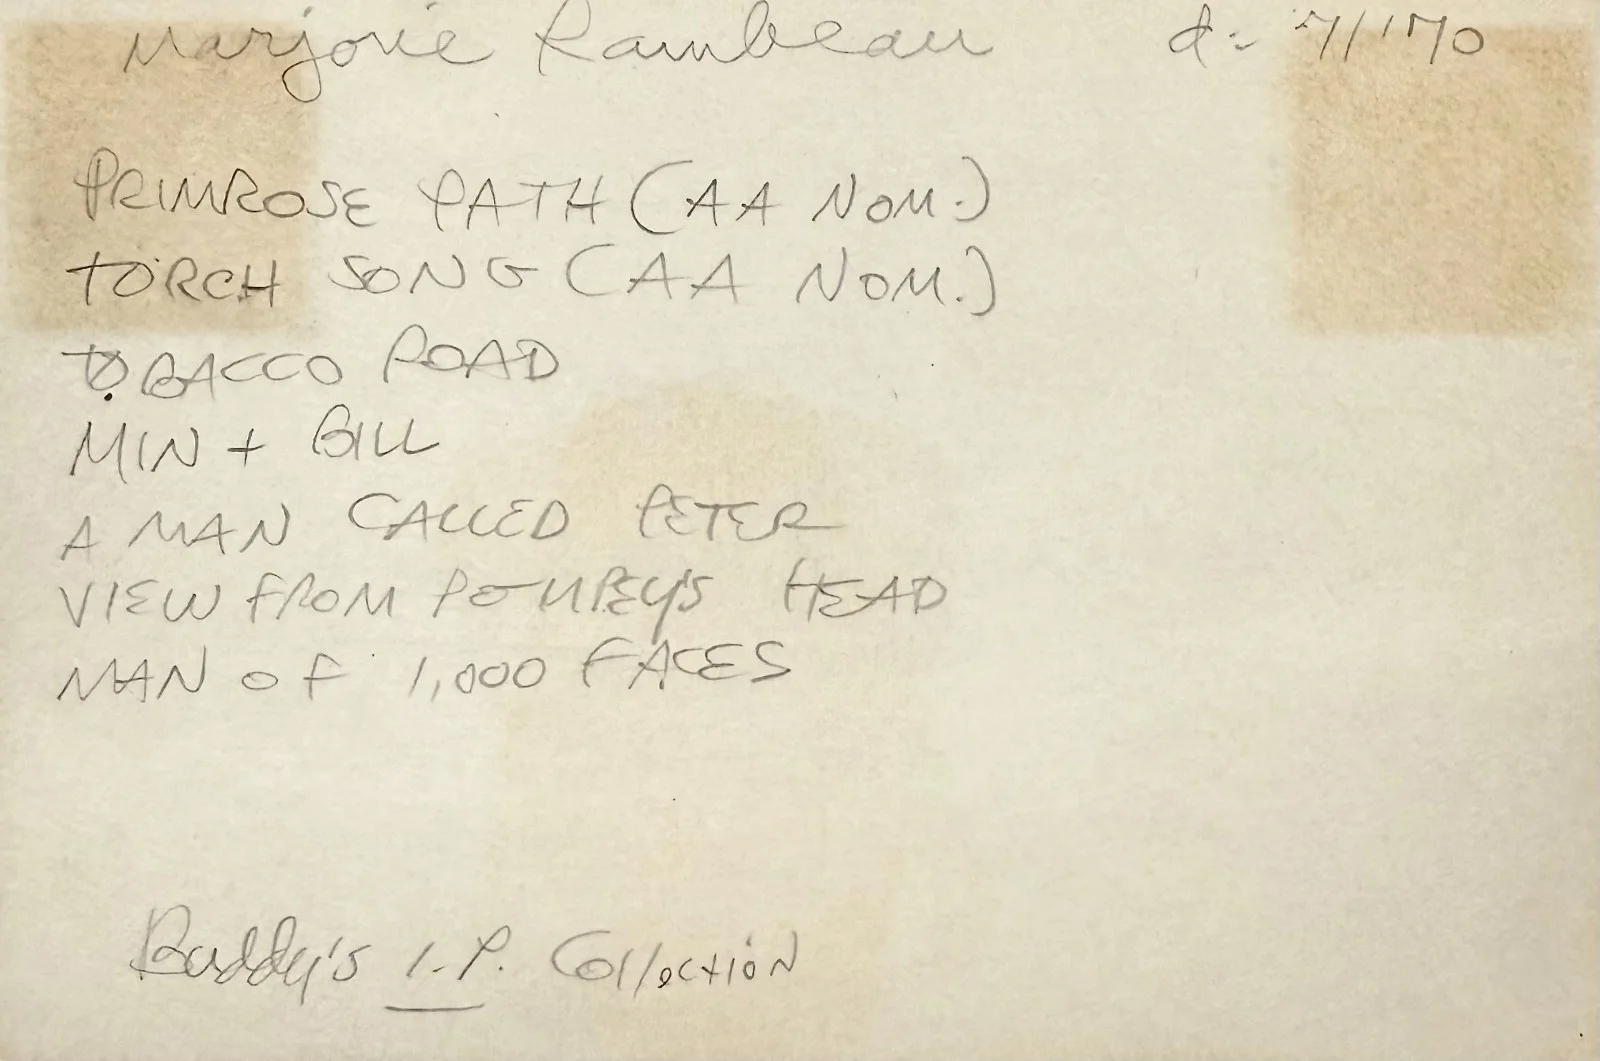 Marjorie Rambeau d- 7/1/70
PRIMROSE PATH (AA NOM.)
TORCH SONG (AA NOM.)
TOBACCO ROAD
MIN + BILL
A MAN CALLED PETER
VIEW FROM POMPEY'S HEAD
MAN OF 1,000 FACES
Buddy's I.P. Collection